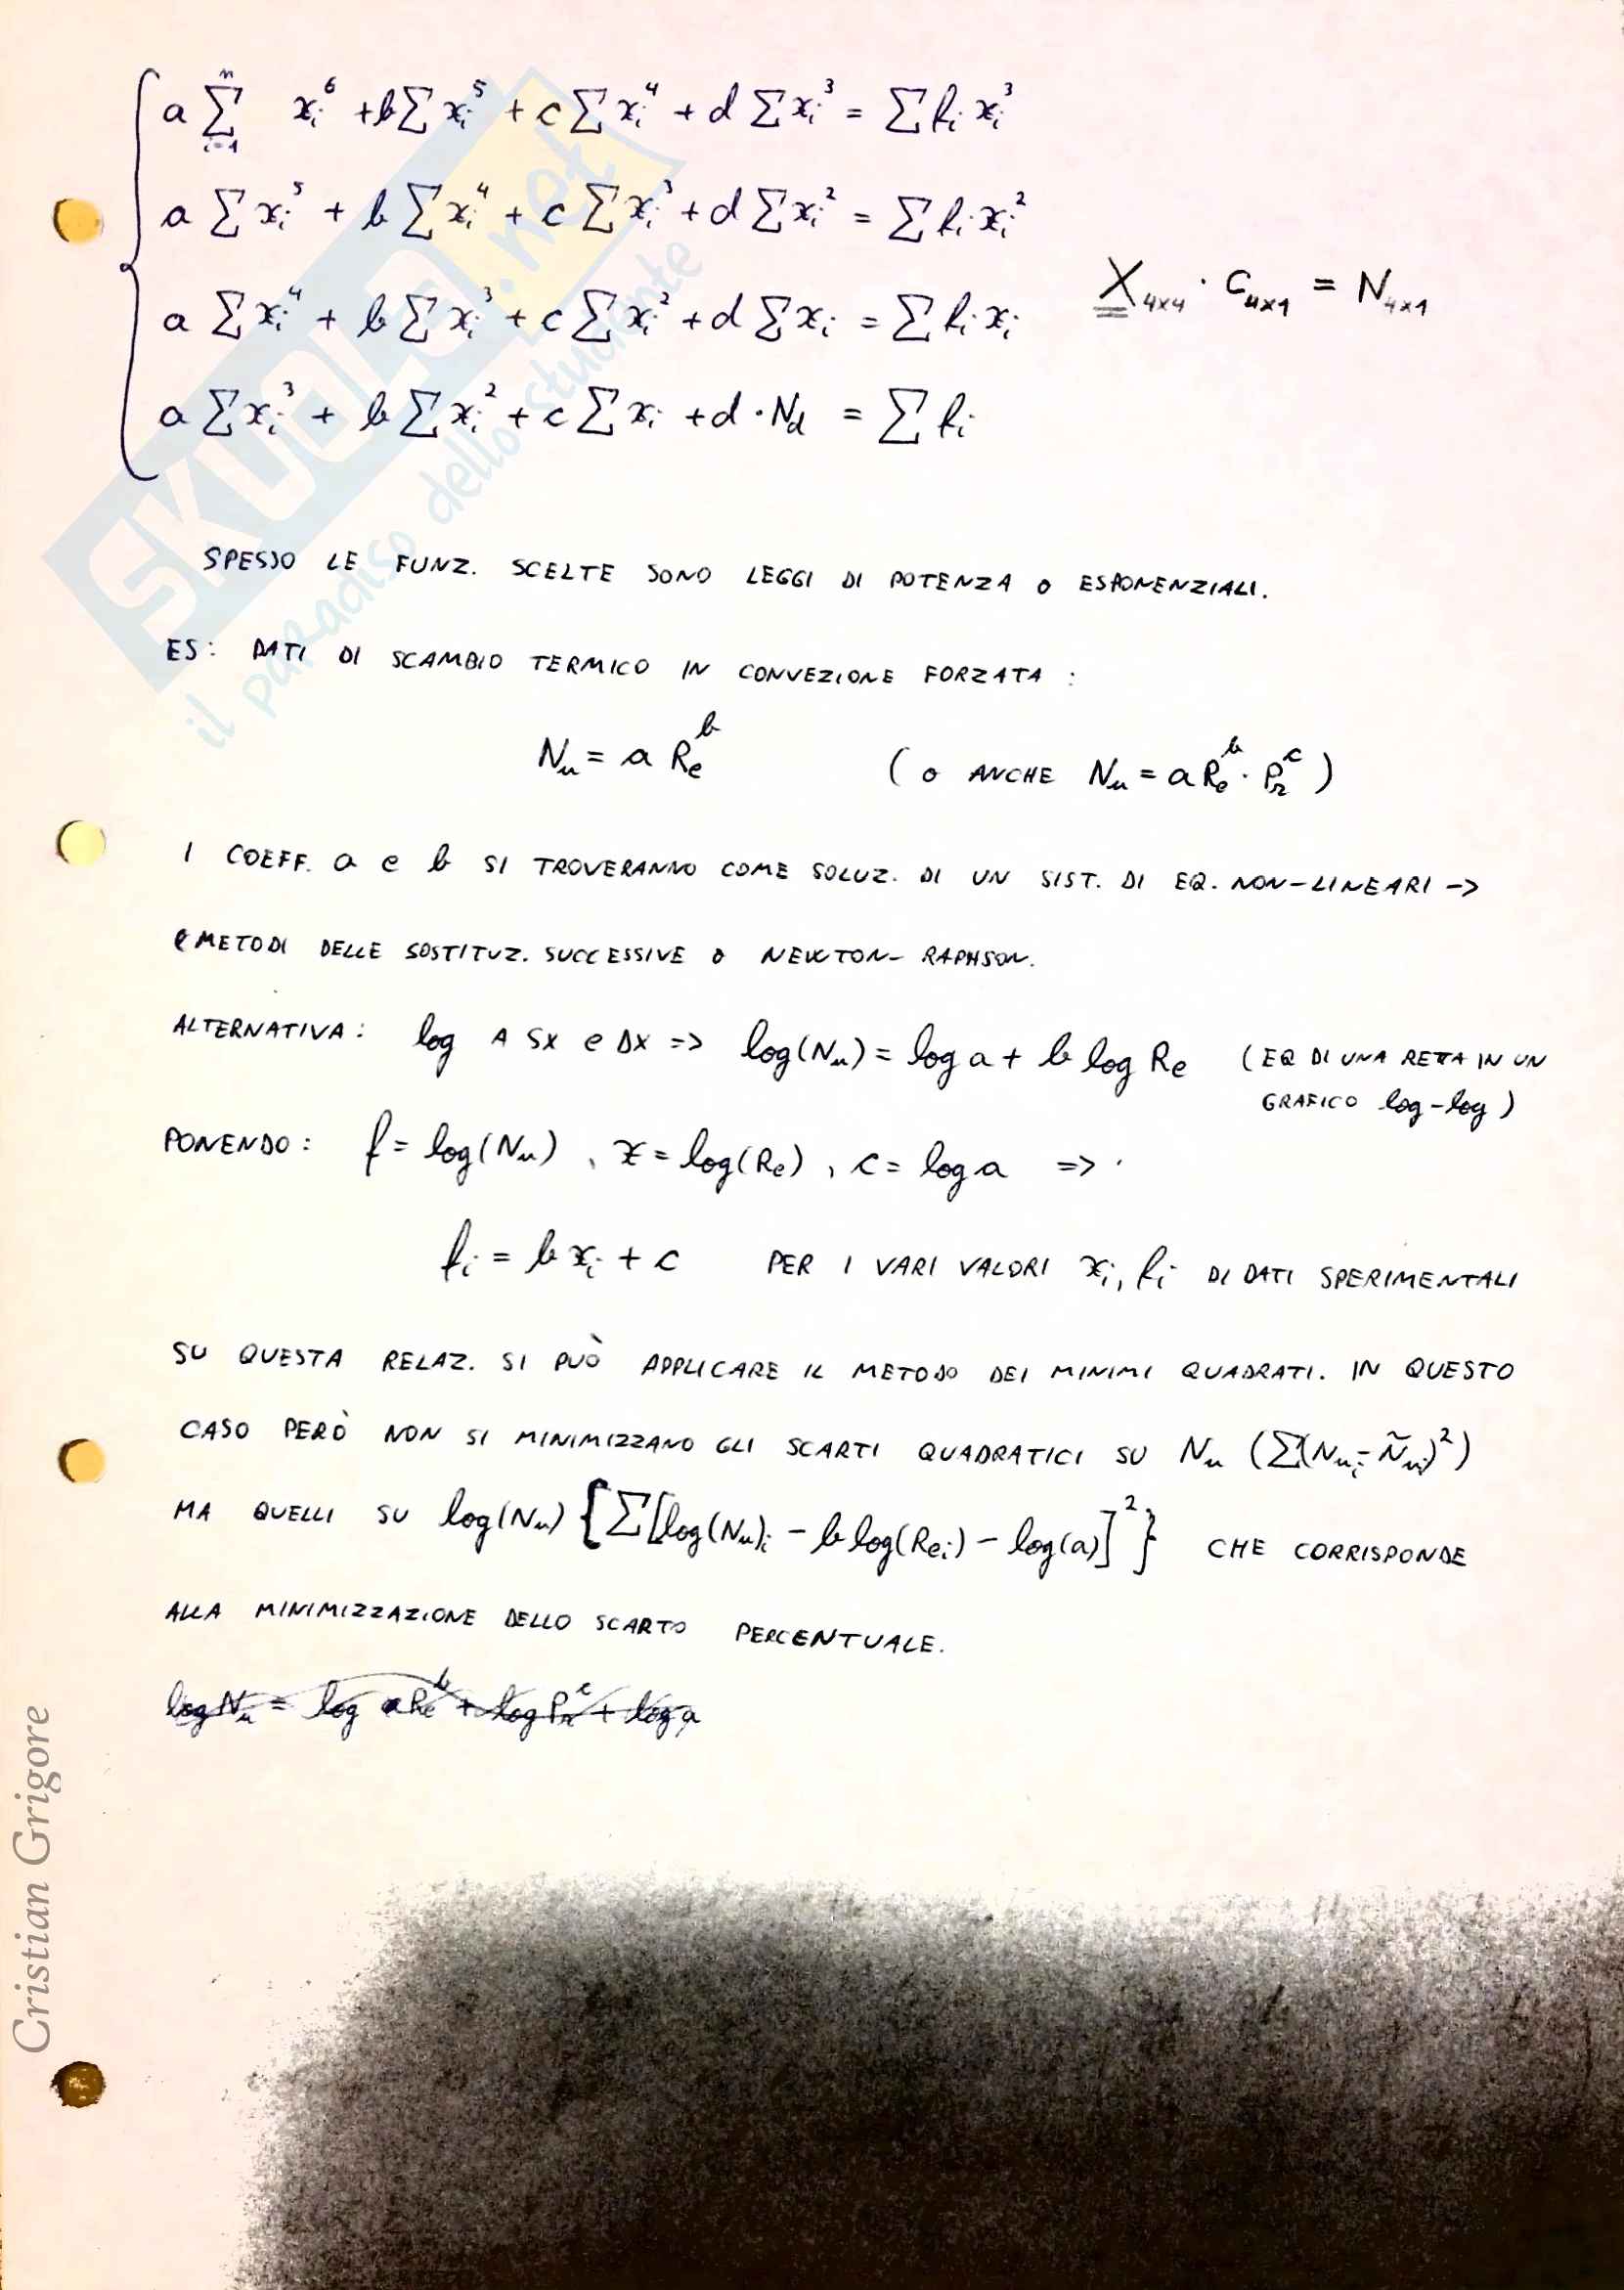 a ∑ᵢ₌₁ⁿ xᵢ⁶ + b∑xᵢ⁵ + c∑xᵢ⁴ + d∑xᵢ³ = ∑fᵢxᵢ³
a∑xᵢ⁵ + b∑xᵢ⁴ + c∑xᵢ³ + d∑xᵢ² = ∑fᵢxᵢ²
a∑xᵢ⁴ + b∑xᵢ³ + c∑xᵢ² + d∑xᵢ = ∑fᵢxᵢ
X₄ₓ₄ · C₄ₓ₁ = N₄ₓ₁
a∑xᵢ³ + b∑xᵢ² + c∑xᵢ + d·N_d = ∑fᵢ
SKUOLA.net
il paradiso dello studente
SPESSO LE FUNZ. SCELTE SONO LEGGI DI POTENZA O ESPONENZIALI.
ES: DATI DI SCAMBIO TERMICO IN CONVEZIONE FORZATA :
Nu = a Re^b (O ANCHE Nu = a Re^b · Pr^c)
I COEFF. a e b SI TROVERANNO COME SOLUZ. DI UN SIST. DI EQ. NON-LINEARI ->
METODI DELLE SOSTITUZ. SUCCESSIVE O NEWTON-RAPHSON.
ALTERNATIVA: log A SX e DX => log(Nu) = log a + b log Re (EQ DI UNA RETTA IN UN
GRAFICO log-log)
PONENDO: f = log(Nu), x = log(Re), c = log a =>
fᵢ = b xᵢ + c PER I VARI VALORI xᵢ, fᵢ DI DATI SPERIMENTALI
SU QUESTA RELAZ. SI PUÒ APPLICARE IL METODO DEI MINIMI QUADRATI. IN QUESTO
CASO PERÒ NON SI MINIMIZZANO GLI SCARTI QUADRATICI SU Nu (∑(Nuᵢ - Ñuᵢ)²)
MA QUELLI SU log(Nu) {∑[log(Nu)ᵢ - b log(Reᵢ) - log(a)]²} CHE CORRISPONDE
ALLA MINIMIZZAZIONE DELLO SCARTO PERCENTUALE.
log Nu = log aRe^b + log Pr^c + log a
Cristian Grigore